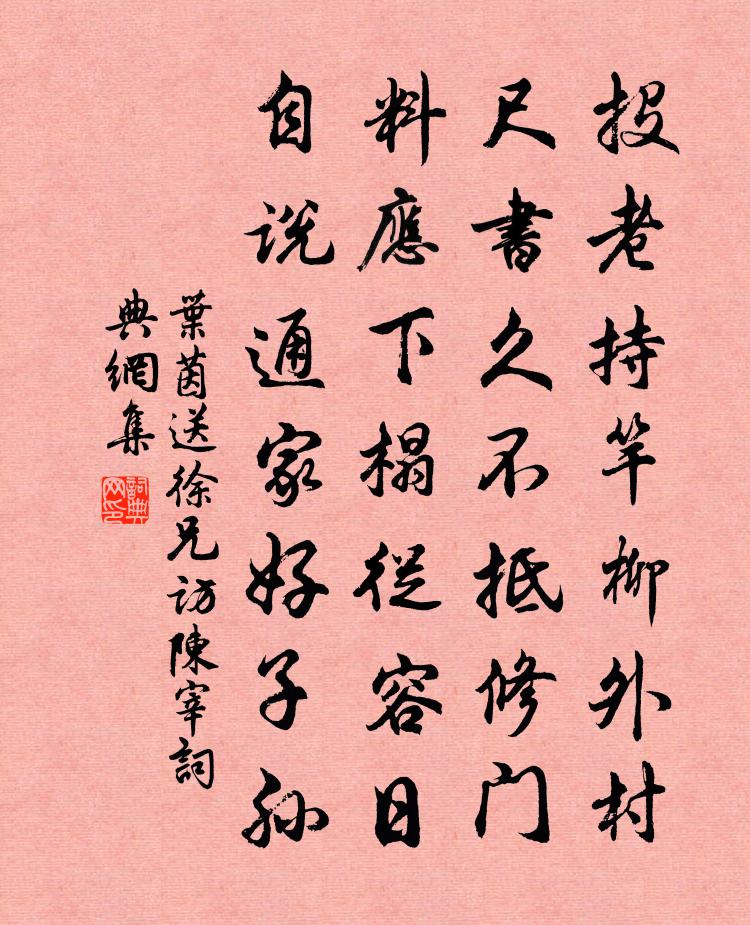 投老持竿柳外村
尺書久不抵修门
料應下榻從容日
自说通家好子孙
葉茵送徐兄访陳宰詞
典網集
詞典
网印